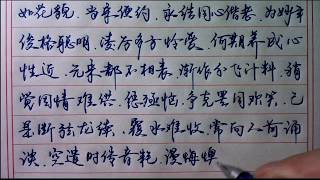 如花貌，当来便约，永结同心偕老，为妙年
俊格聪明，凌厉多方怜爱，何期养成心
性近，元来都不相表，渐作分飞计料，稍
觉因情难供，恁殛恼，争克罢同欢笑，已
是断弦尤续，覆水难收，常向人前诵
谈，空遣时传音耗，漫悔懊